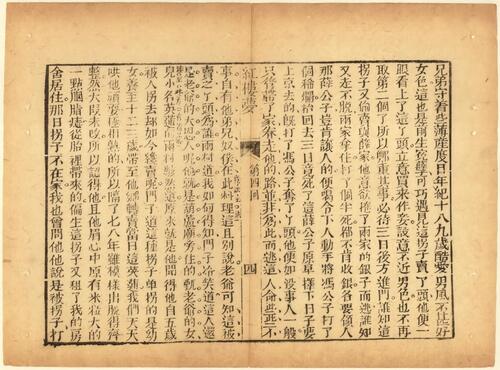 兄弟守着些薄產度日年紀十八九歲酷愛男風不甚好
女色這也是前生冤孽可巧遇見這拐子賣丫頭他便一
眼看上了這丫頭立意買來作妾設誓不近男色也不再
娶第二個了所以鄭重其事必待三日後方進門誰知這
拐子又偷賣與薛家他意欲捲了兩家的銀子而逃誰知
又走不脫兩家拿住打了個半死都不肯收銀各要領人
那薛公子豈肯讓人的便喝令下人動手將馮公子打了
個稀爛抬回去三日竟死了這薛公子原早擇下日子要
上京去的既打了馮公子奪了丫頭他便如沒事人一般
只管帶了家眷走他的路並非爲此而逃這人命些些小
紅樓夢
第四回
四
事自有他弟兄奴僕在此料理這且別說老爺可知這被
賣之丫頭爲誰雨村道我如何得知門子冷笑道這人還
是老爺的大恩人呢他就是葫蘆廟旁住的甄老爺的女
兒小名英蓮的雨村駭然道原來就是他聞得他自五歲
被人拐去却如今纔賣呢門子道這種拐子單拐的是幼
女養至十二三歲帶至他鄉轉賣當日這英蓮我們天天
哄他頑耍極相熟的所以隔了七八年雖模樣出脫得齊
整然大段未改所以認得他且他眉心中原有米粒大的
一點胭脂㾵從胎裡帶來的偏生這拐子又租了我的房
舍居住那日拐子不在家我也曾問他他說是被拐子打